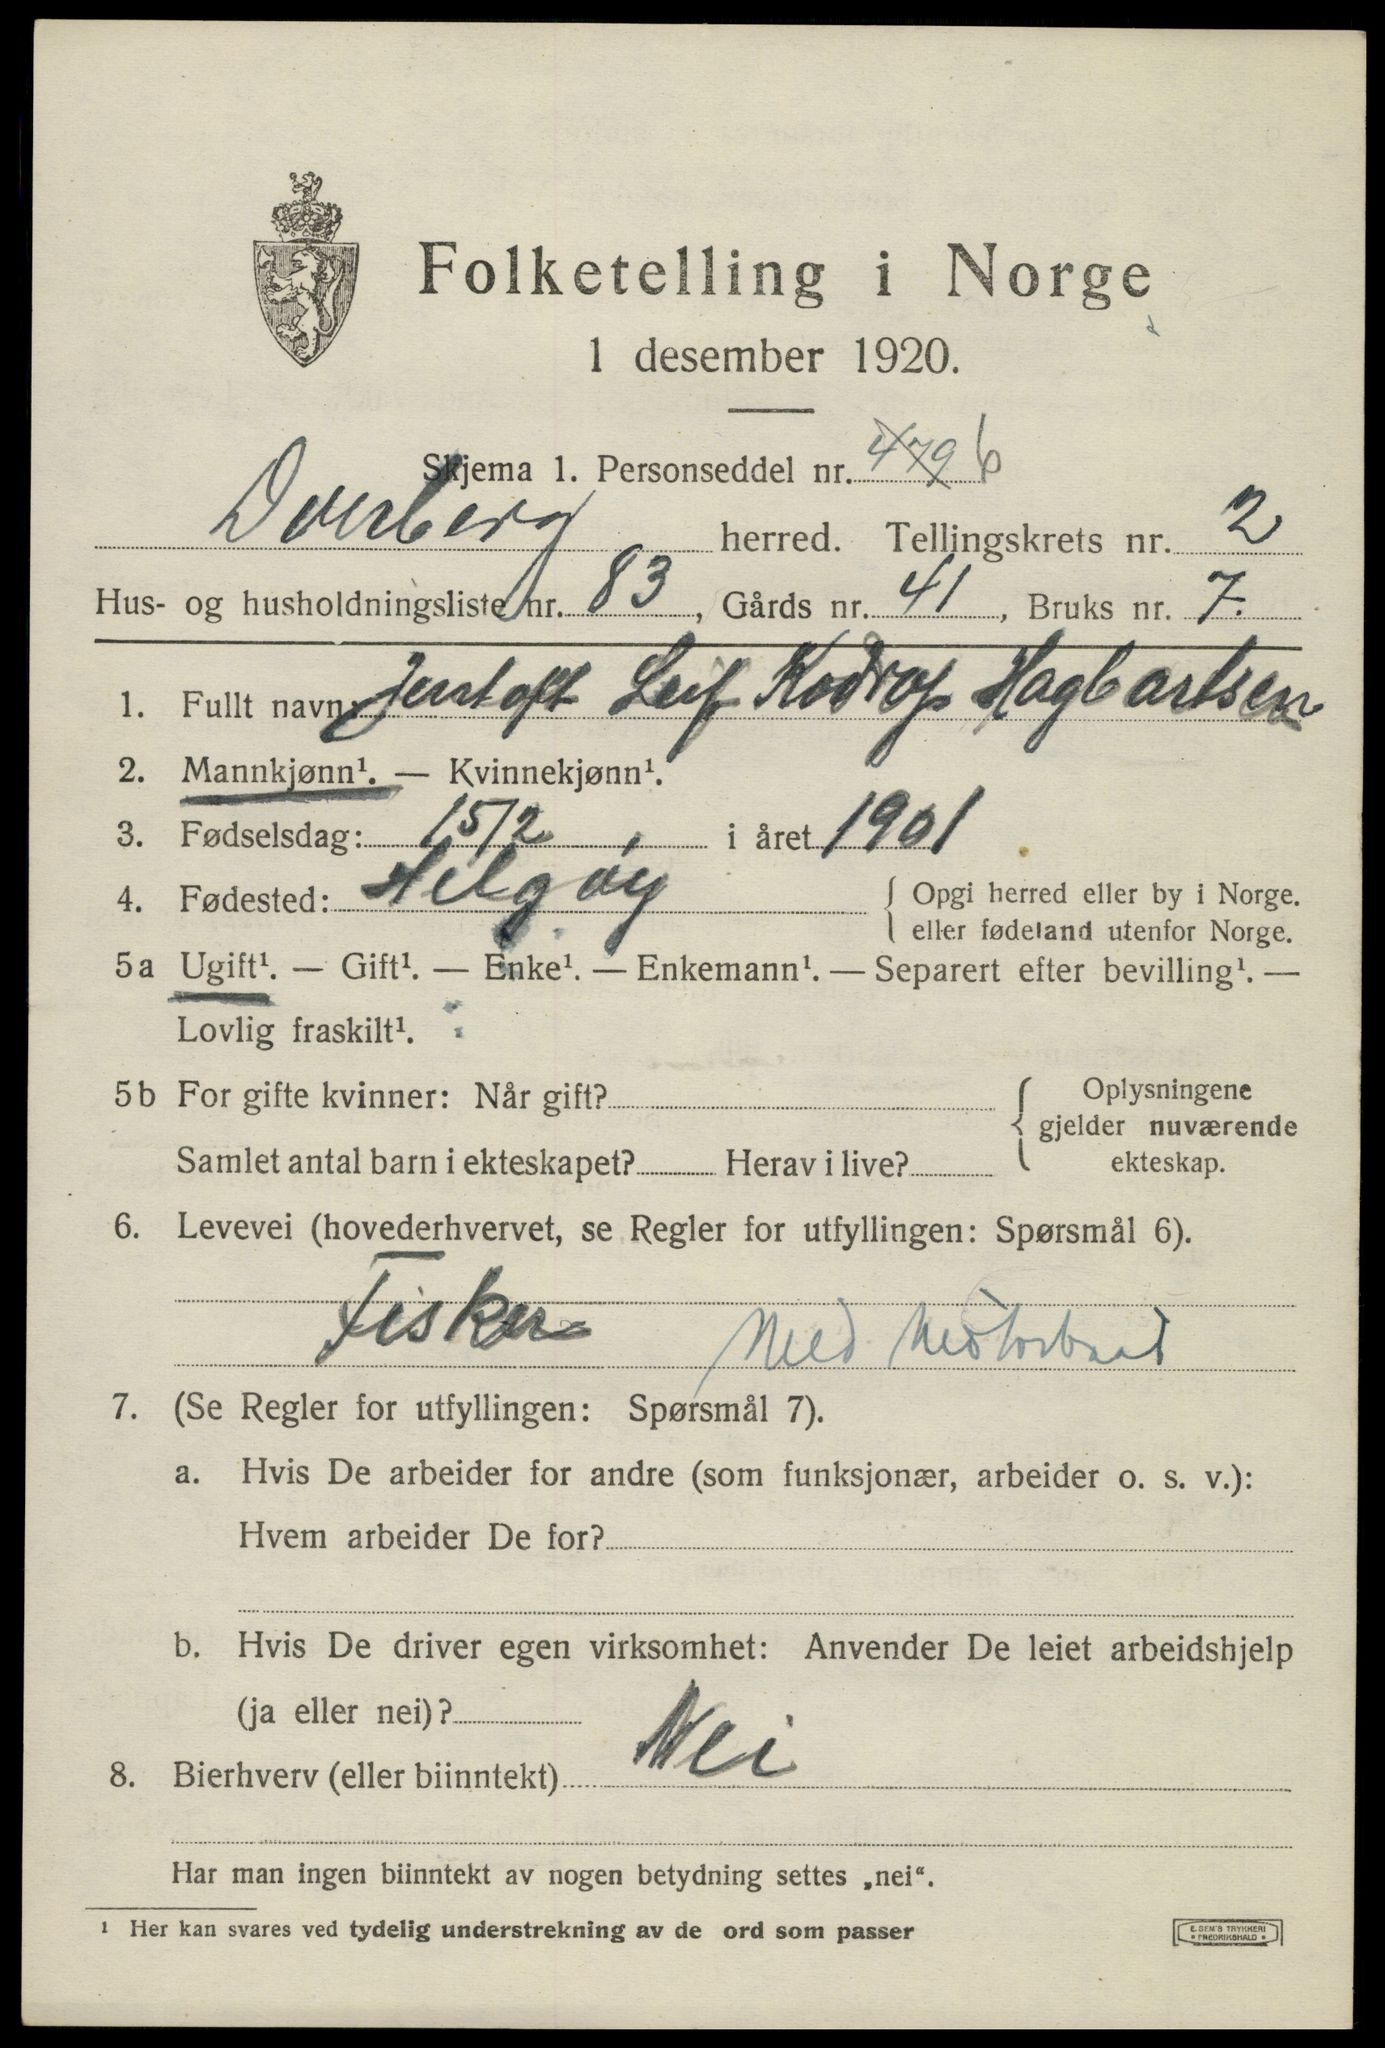 Folketelling i Norge
1 desember 1920.
Skjema 1. Personseddel nr. 479 6
Dverberg herred. Tellingskrets nr. 2
Hus- og husholdningsliste nr. 83, Gårds nr. 41, Bruks nr. 7.
1. Fullt navn: Leif Hagbartsen
2. Mannkjønn¹. — Kvinnekjønn¹.
3. Fødselsdag: 15/2 i året 1901
4. Fødested: Helgøy { Opgi herred eller by i Norge.
eller fødeland utenfor Norge.
5a Ugift¹. — Gift¹. — Enke¹. — Enkemann¹. — Separert efter bevilling¹. —
Lovlig fraskilt¹.
5b For gifte kvinner: Når gift? { Oplysningene
gjelder nuværende
Samlet antal barn i ekteskapet? Herav i live? ekteskap.
6. Levevei (hovederhvervet, se Regler for utfyllingen: Spørsmål 6).
Fisker Med Motorbaad
7. (Se Regler for utfyllingen: Spørsmål 7).
a. Hvis De arbeider for andre (som funksjonær, arbeider o. s. v.):
Hvem arbeider De for?
b. Hvis De driver egen virksomhet: Anvender De leiet arbeidshjelp
(ja eller nei)?
8. Bierhverv (eller biinntekt) Nei
Har man ingen biinntekt av nogen betydning settes „nei“.
¹ Her kan svares ved tydelig understrekning av de ord som passer
E. SEM'S TRYKKERI
• FREDRIKSHALD •